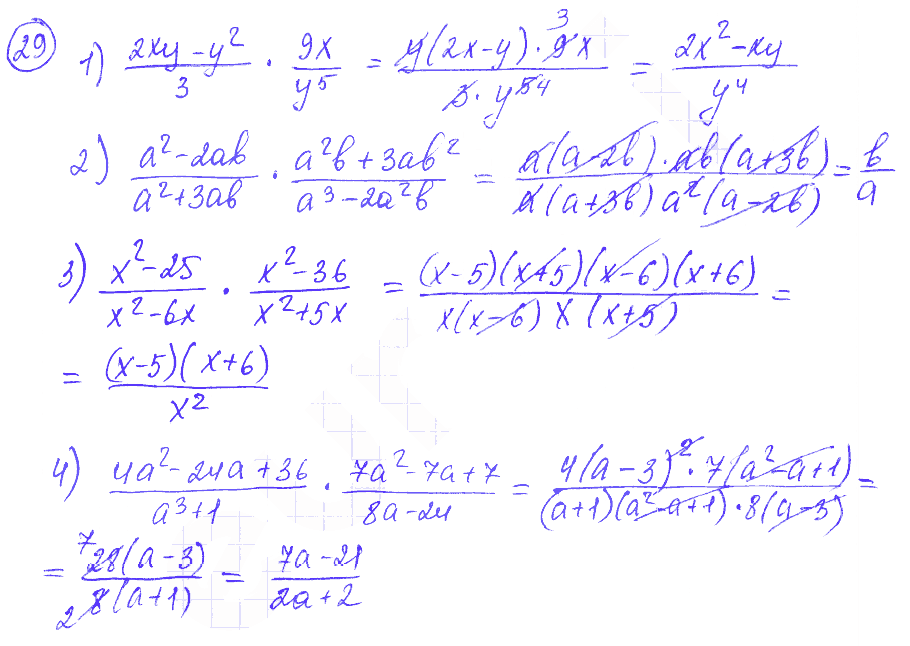 29 1) (2xy - y²)/3 · 9x/y⁵ = (y(2x-y) · 9³x)/(3 · y⁵⁴) = (2x² - xy)/y⁴
2) (a² - 2ab)/(a² + 3ab) · (a²b + 3ab²)/(a³ - 2a²b) = (a(a-2b) · ab(a+3b))/(a(a+3b) a²(a-2b)) = b/a
3) (x² - 25)/(x² - 6x) · (x² - 36)/(x² + 5x) = ((x-5)(x+5)(x-6)(x+6))/(x(x-6) x (x+5)) =
= ((x-5)(x+6))/x²
4) (4a² - 24a + 36)/(a³ + 1) · (7a² - 7a + 7)/(8a - 24) = (4(a-3)² · 7(a² - a + 1))/((a+1)(a² - a + 1) · 8(a-3)) =
= (⁷28(a-3))/(₂8(a+1)) = (7a - 21)/(2a + 2)